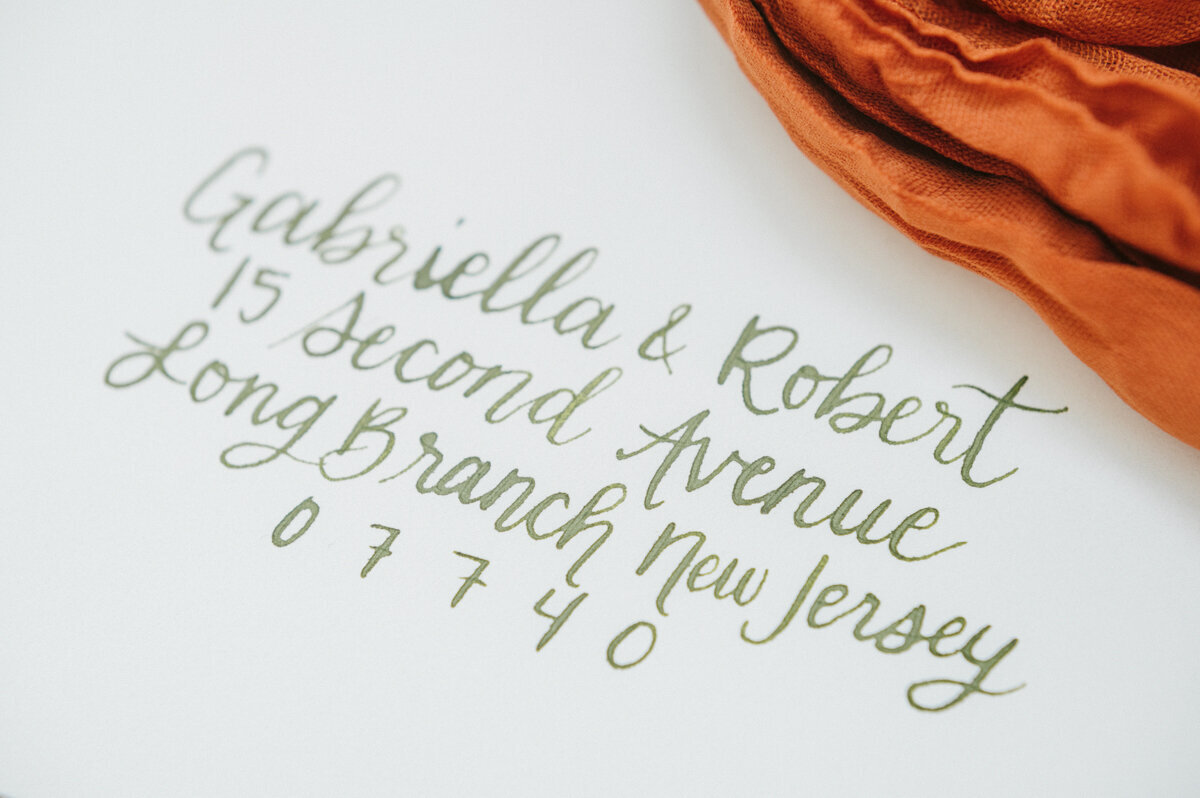 Gabriella & Robert
15 Second Avenue
Long Branch New Jersey
07740